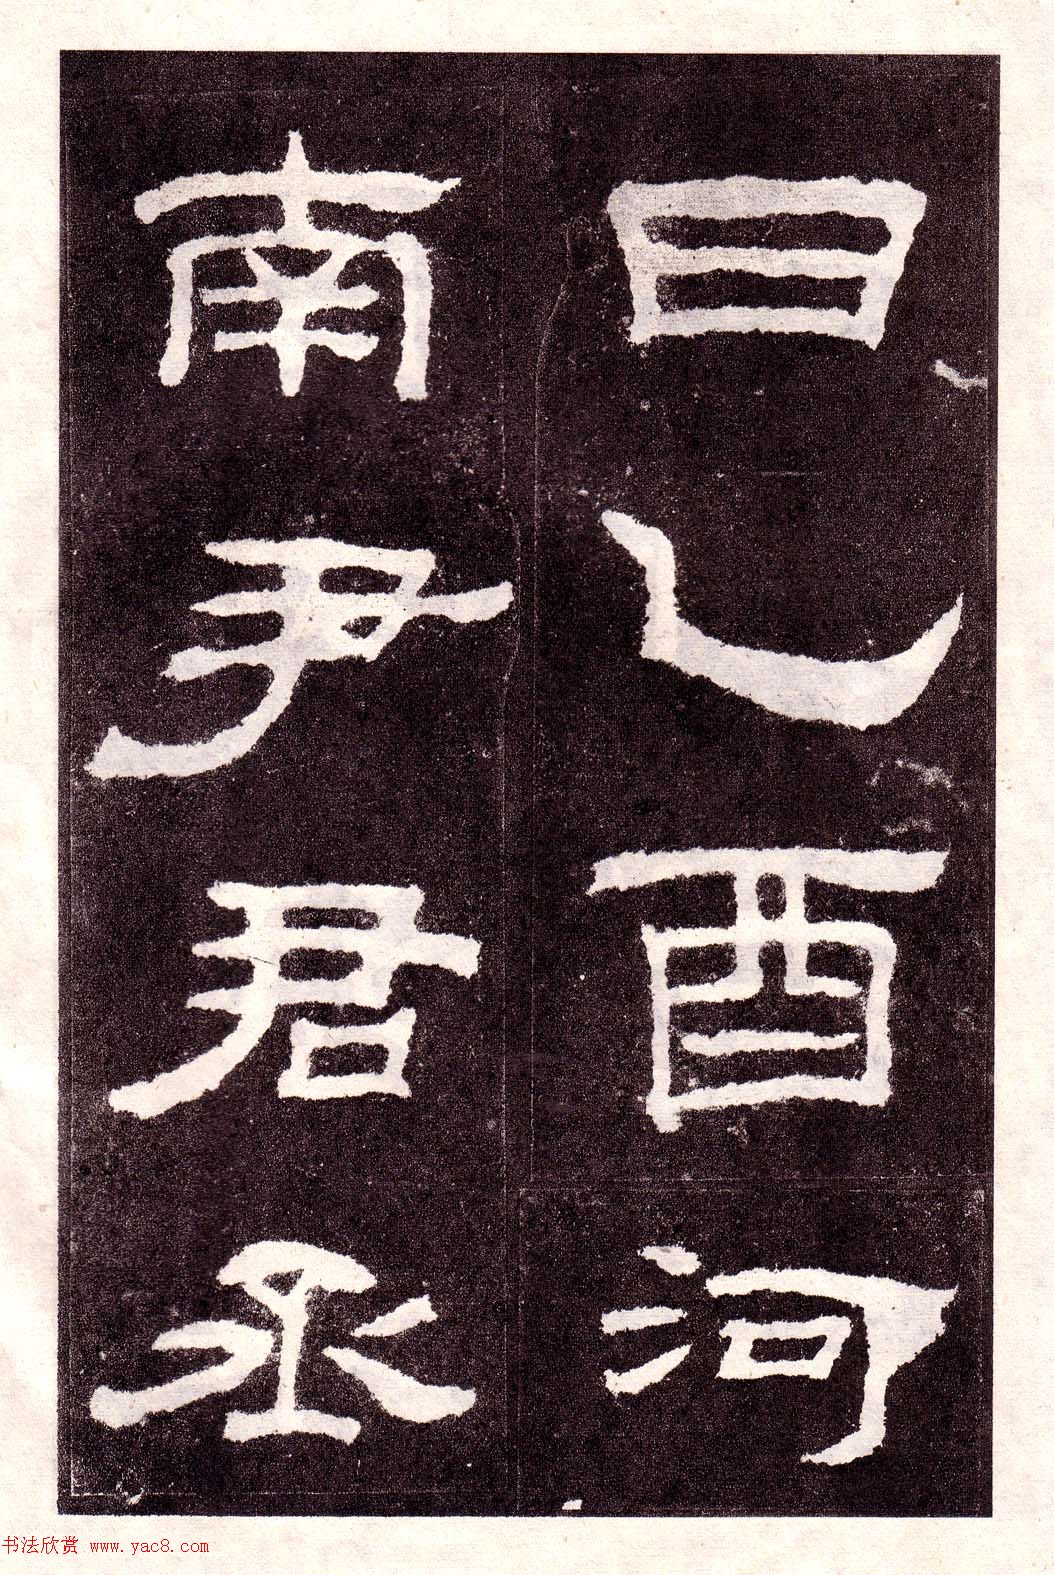 日乙酉河
南尹君丞
书法欣赏 www.yac8.com